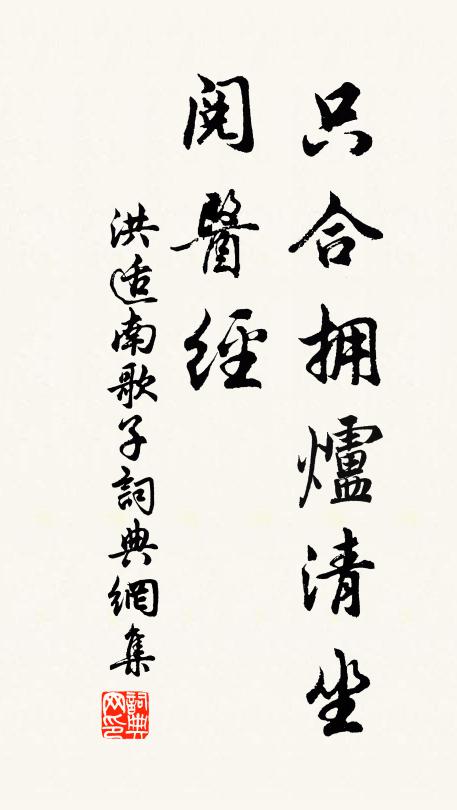 只合拥爐清坐
閱醫經
洪适南歌子詞典網集
詞典網印